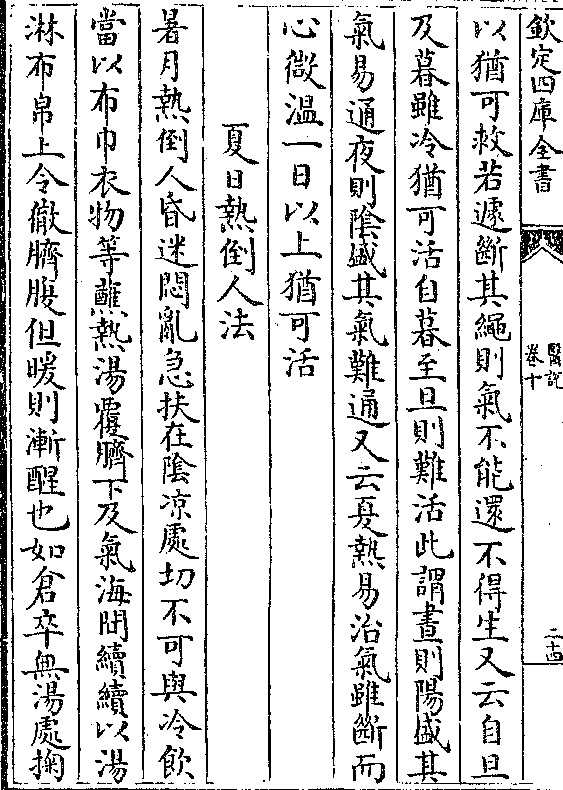 欽定四庫全書
醫說
卷十
二十四
以猶可救若遽斷其繩則氣不能還不得生又云自旦
及暮雖冷猶可活自暮至旦則難活此謂晝則陽盛其
氣易通夜則陰盛其氣難通又云夏熱易治氣雖斷而
心微溫一日以上猶可活
夏日熱倒人法
暑月熱倒人昏迷悶亂急扶在陰凉處切不可與冷飲
當以布巾衣物等蘸熱湯覆臍下及氣海間續續以湯
淋布帛上令徹臍腹但暖則漸醒也如倉卒無湯處掬